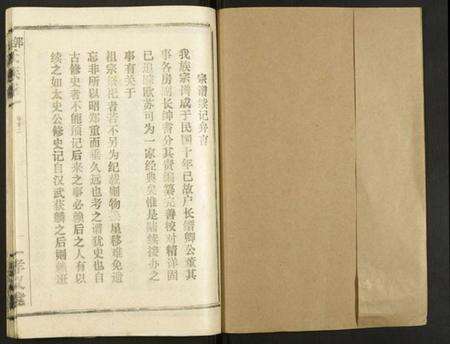 宗谱续记弁言
我族宗谱成于民国十年已故户长缙卿公董其
事各房房长绅耆分其责编纂完善校对精详固
已追踪欧苏可为一家经典矣惟是赓续接办之
事有关于
祖宗祭祀者若不另为纪载则物星移难免遗
忘非所以昭郑重而垂久远也考之谱犹史也自
古修史者不能预记后来之事必赖后之人有以
续之如太史公修史记自汉武获麟之后则